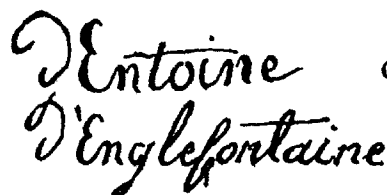 D'Entoine
D'Englefontaine